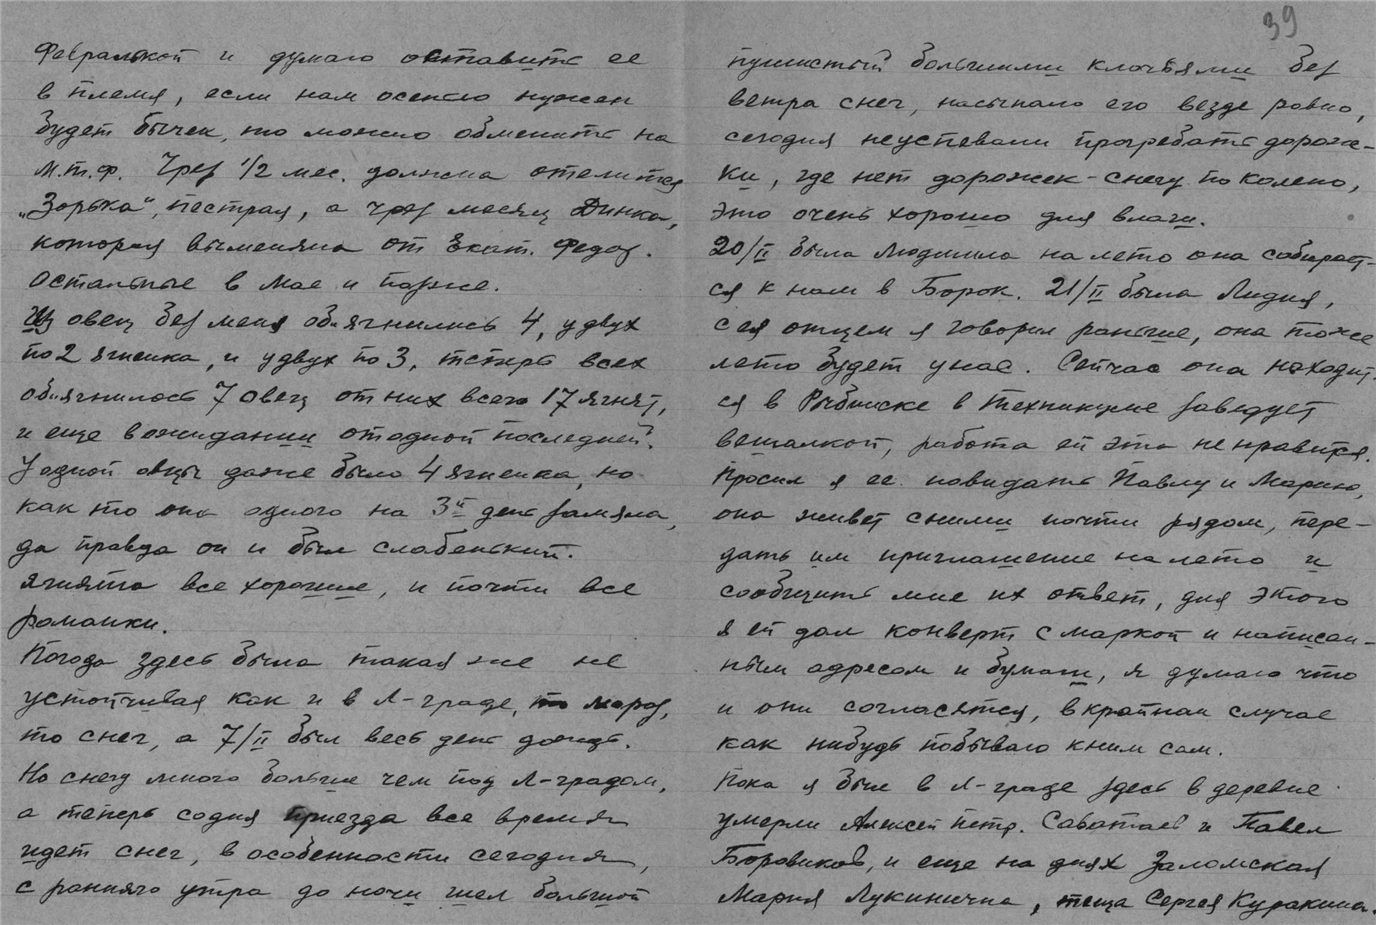 февральской и думаю оставить ее
в племя, если нам осенью нужен
будет бычек, то можно обменить на
М.т.ф. Чрез 1/2 мес. должна отелится
„Зорька“, пестрая, а чрез месяц Динка,
которая выменяна от Екат. Федор.
Остальные в мае и позже.
Из овец без меня объягнились 4, у двух
по 2 ягненка, и у двух по 3, теперь всех
объягнилось 7 овец от них всего 17 ягнят,
и еще в ожидании от одной последней.
У одной овцы даже было 4 ягненка, но
как то она одного на 3й день замяла,
да правда он и был слабенький.
Ягнята все хорошие, и почти все
романки.
Погода здесь была такая же не
устойчивая как и в Л-граде, то мороз,
то снег, а 7/II был весь день дождь.
Но снегу много больше чем под Л-градом,
а теперь со дня приезда все время
идет снег, в особенности сегодня,
с раннего утра до ночи шел большой
39
пушистый большими клочьями без
ветра снег, насыпало его везде ровно,
сегодня неуспевали прогребать дорож-
ки, где нет дорожек - снегу по колено,
это очень хорошо для влаги.
20/II была Людмила на лето она собирает-
ся к нам в Борок. 21/II была Лидия,
с ея отцем я говорил раньше, она тоже
лето будет у нас. Сейчас она находит-
ся в Рыбинске в техникуме заведует
вешалкой, работа ей эта не нравится.
Просил я ее повидать Павлу и Марию,
она живет с ними почти рядом, пере-
дать им приглашение на лето и
сообщить мне их ответ, для этого
я ей дал конверт с маркой и написан-
ным адресом и бумаги, я думаю что
и они согласятся, в крайнем случае
как нибудь побываю к ним сам.
Пока я был в Л-граде здесь в деревне
умерли Алексей Петр. Саватеев и Павел
Боровиков, и еще на днях Заломская
Мария Лукинична, теща Сергея Куракина.